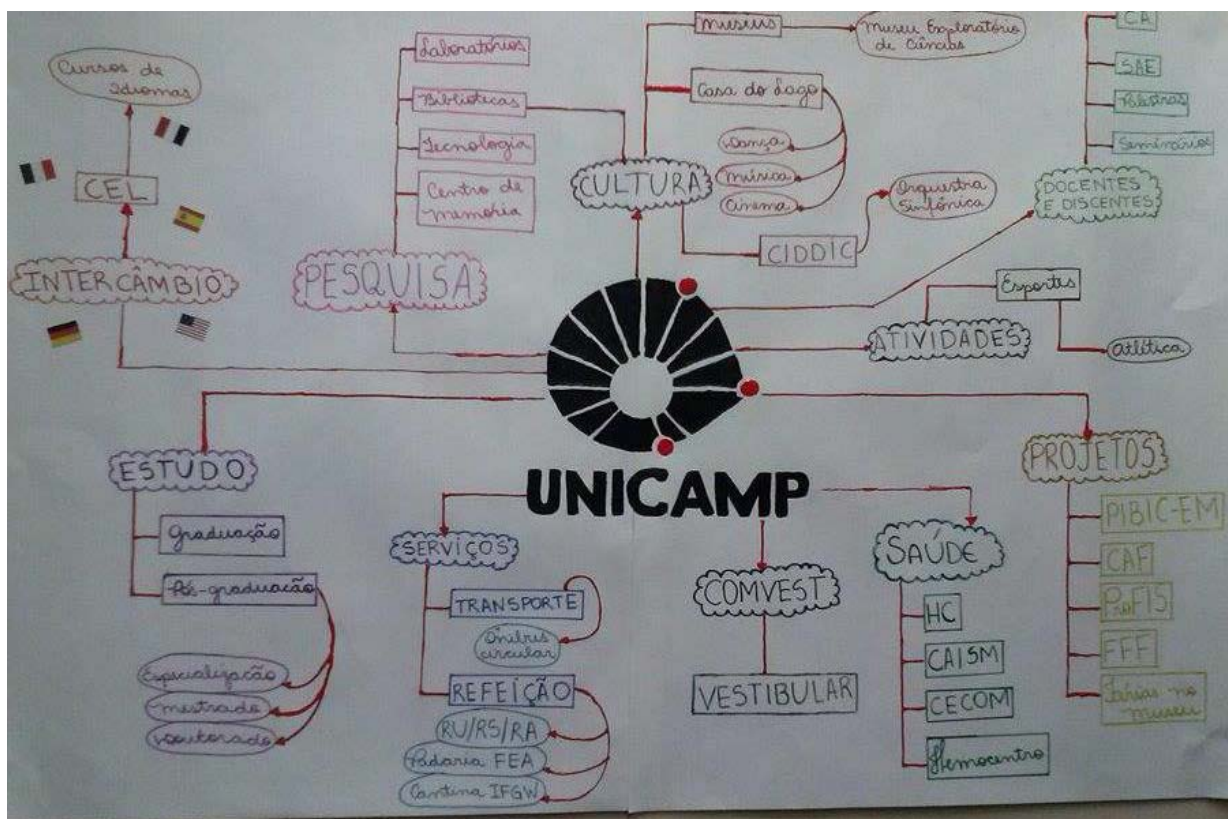 Cursos de
Idiomas
CEL
INTERCÂMBIO
Laboratórios
Bibliotecas
Tecnologia
Centro de
memória
PESQUISA
museus
museu Exploratório
de Ciências
Casa do Lago
Dança
música
Cinema
CULTURA
Orquestra
Sinfônica
CIDDIC
CA
SAE
Palestras
Seminários
DOCENTES
E DISCENTES
Esportes
ATIVIDADES
Atlética
UNICAMP
ESTUDO
Graduação
Pós-graduação
Especialização
mestrado
Doutorado
SERVIÇOS
TRANSPORTE
Ônibus
circular
REFEIÇÃO
RU/RS/RA
Padaria FEA
Cantina IFGW
COMVEST
VESTIBULAR
SAÚDE
HC
CAISM
CECOM
Hemocentro
PROJETOS
PIBIC-EM
CAF
ProFIS
FFF
Férias no
museu